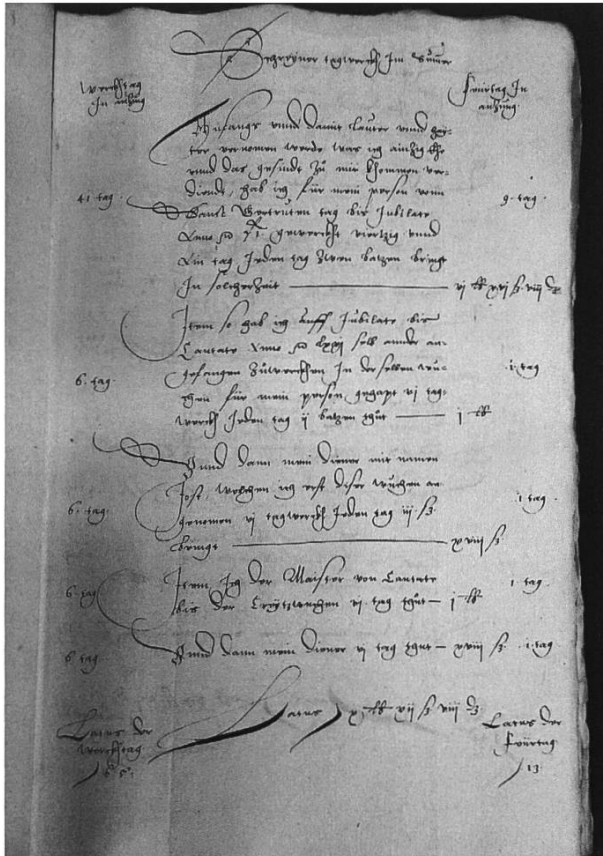 Schreyner tagwerckh Im Sumer
Werchtag
In anzug
Feirtag In
anzug
Anfangs vnnd damit lauter vnnd hey-
ter vernomen werde was ich ainzig Ehe
vnnd das gesindt zu mir khommen ver-
diendt, hab ich für mein person vonn
41 tag. Sanct Gertruten tag bis Jubilate 9 tag
Anno etc 71. gewerckht viertzig vnnd
Ain tag Jeden tag Zwen batzen bringt
In solcher Zeit — vj lb xvj ß viij d
Item so hab ich auff Jubilate bis
Cantate Anno etc lxxj selb ander an-
6. tag. gefangen Zuwerckhen In derselben wu- 1. tag
chen für mein person gehapt vj tag-
werckh Jeden tag ij batzen thut — j lb
Vnnd dann mein diener mit namen
Jost, welchen ich erst diser wuchen an
6. tag. genomen vj tagwerckh Jeden tag iij ß 1 tag
bringt — xviij ß
6. tag Item Ich der Maister von Cantate 1 tag
bis der Creytzwochen vj tag thut — j lb
6 tag Vnnd dann mein diener vj tag thut — xviij ß 1. tag
Latus x lb xij ß viij d
Latus der
Werchtag
65
Latus der
Feirtag
13